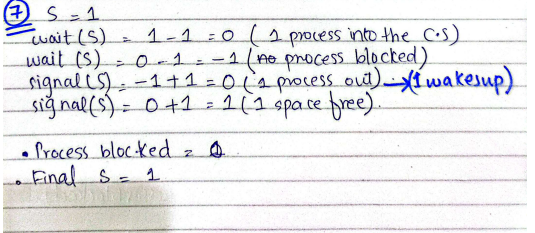 ⑦ S = 1
wait (S) = 1 - 1 = 0 ( 1 process into the C.S)
wait (S) = 0 - 1 = -1 ( process blocked)
signal (S) = -1 + 1 = 0 (1 process out) → (1 wakesup)
signal(S) = 0 + 1 = 1 (1 space free).
• Process blocked =
• Final S = 1